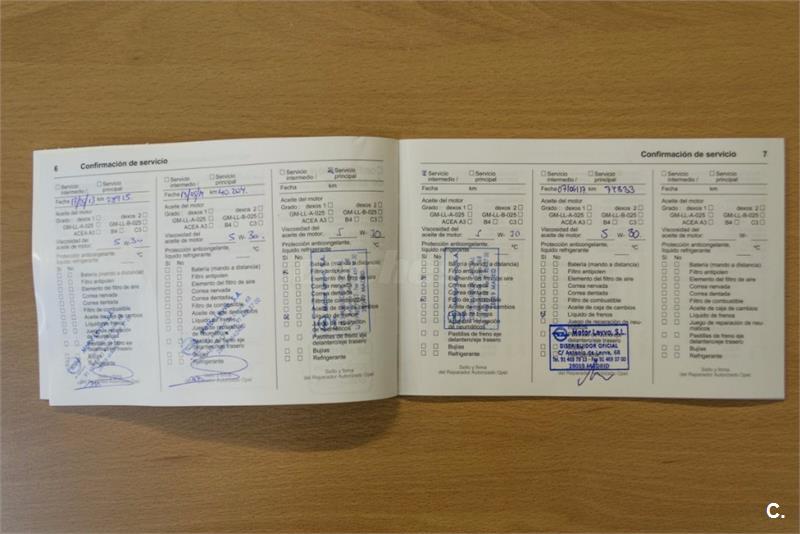 6 Confirmación de servicio
Servicio intermedio / Servicio principal
Fecha km
Aceite del motor
Grado: dexos 1 dexos 2
GM-LL-A-025 GM-LL-B-025
ACEA A3 B4 C3
Viscosidad del
aceite de motor: 5 W- 30
Protección anticongelante,
líquido refrigerante °C
Sí No
Batería (mando a distancia)
Filtro antipolen
Elemento del filtro de aire
Correa nervada
Correa dentada
Filtro de combustible
Aceite de caja de cambios
Líquido de frenos
Juego de reparación de
neumáticos
Pastillas de freno eje
delantero/eje trasero
Bujías
Refrigerante
Servicio intermedio / Servicio principal
Fecha km 40.204
Aceite del motor
Grado: dexos 1 dexos 2
GM-LL-A-025 GM-LL-B-025
ACEA A3 B4 C3
Viscosidad del
aceite de motor: 5 W- 30
Protección anticongelante,
líquido refrigerante °C
Sí No
Batería (mando a distancia)
Filtro antipolen
Elemento del filtro de aire
Correa nervada
Correa dentada
Filtro de combustible
Líquido de frenos
Juego de reparación de
Pastillas de freno eje
delantero/eje trasero
Bujías
Refrigerante
Servicio intermedio / Servicio principal
Fecha km
Aceite del motor
Grado: dexos 1 dexos 2
GM-LL-A-025 GM-LL-B-025
ACEA A3 B4 C3
Viscosidad del
aceite de motor: 5 W- 30
Protección anticongelante,
líquido refrigerante °C
Sí No
Batería (mando a distancia)
Filtro antipolen
Elemento del filtro de aire
Correa nervada
Correa dentada
Filtro de combustible
Aceite de caja de cambios
Líquido de frenos
Juego de reparación de
neumáticos
Pastillas de freno eje
delantero/eje trasero
Bujías
Refrigerante
Sello y firma
del Reparador Autorizado Opel
Confirmación de servicio 7
Servicio intermedio / Servicio principal
Fecha km
Aceite del motor
Grado: dexos 1 dexos 2
GM-LL-A-025 GM-LL-B-025
ACEA A3 B4 C3
Viscosidad del
aceite de motor: 5 W- 30
Protección anticongelante,
líquido refrigerante °C
Sí No
Batería (mando a distancia)
Filtro antipolen
Elemento del filtro de aire
Correa nervada
Correa dentada
Filtro de combustible
Aceite de caja de cambios
Líquido de frenos
Juego de reparación de
neumáticos
Pastillas de freno eje
delantero/eje trasero
Bujías
Refrigerante
Sello y firma
del Reparador Autorizado Opel
Servicio intermedio / Servicio principal
Fecha 07/06/17 km 74833
Aceite del motor
Grado: dexos 1 dexos 2
GM-LL-A-025 GM-LL-B-025
ACEA A3 B4 C3
Viscosidad del
aceite de motor: 5 W- 30
Protección anticongelante,
líquido refrigerante °C
Sí No
Batería (mando a distancia)
Filtro antipolen
Elemento del filtro de aire
Correa nervada
Correa dentada
Filtro de combustible
Aceite de caja de cambios
Líquido de frenos
Juego de reparación de neu-
Motor Leyva, S.L.
DISTRIBUIDOR OFICIAL
C/ Antonio de Leyva, 68
28019 MADRID
del Reparador Autorizado Opel
Servicio intermedio / Servicio principal
Fecha km
Aceite del motor
Grado: dexos 1 dexos 2
GM-LL-A-025 GM-LL-B-025
ACEA A3 B4 C3
Viscosidad del
aceite de motor: W-
Protección anticongelante,
líquido refrigerante °C
Sí No
Batería (mando a distancia)
Filtro antipolen
Elemento del filtro de aire
Correa nervada
Correa dentada
Filtro de combustible
Aceite de caja de cambios
Líquido de frenos
Juego de reparación de neu-
máticos
Pastillas de freno eje
delantero/eje trasero
Bujías
Refrigerante
Sello y firma
del Reparador Autorizado Opel
C.